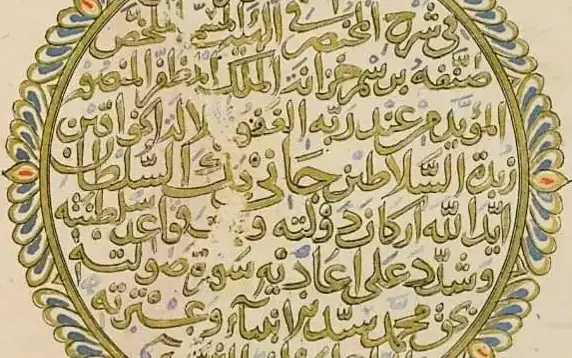 في شرح المختصر في الهيئة المسمى بالملخص
صنفه برسم خزانة الملك المظفر المنصور
المؤيد من عند ربه الغفور
زبدة السلاطين جاني بك السلطان
ايد الله اركان دولته و قواعد سلطنته
وشدد على اعاديه سورة صولته
بحق محمد سيد الانبياء وعترته